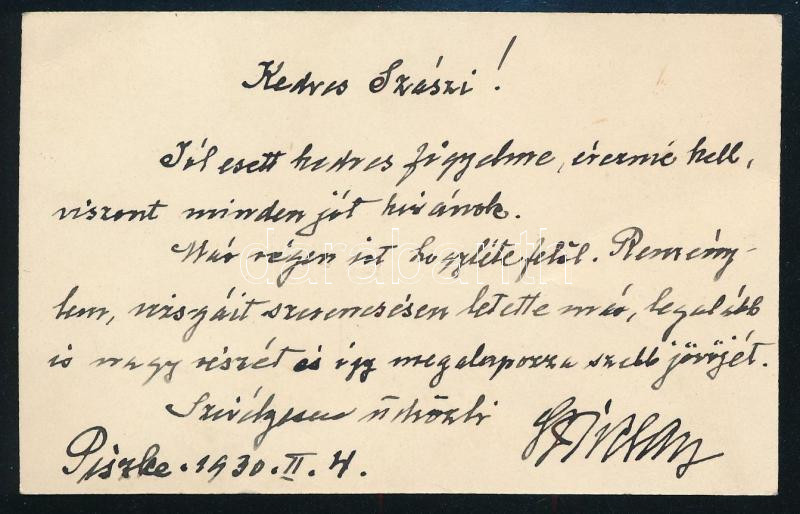 Kedves Szászi!
Jól esett kedves figyelme, éreznie kell,
viszont minden jót kívánok.
Már régen írt hogyléte felől. Remény-
lem, vizsgáit szerencsésen letette már, legalább
is nagy részét és így megalapozza szebb jövőjét.
Szívélyesen üdvözli
Piszke. 1930. II. 4.
darabanth